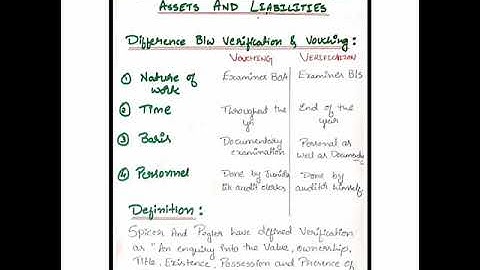 ASSETS AND LIABILITIES
Difference B/w Verification & Vouching:
VOUCHING VERIFICATION
① Nature of work Examines BOA Examines B/S
② Time Throughout the yr End of the year
③ Basis Documentary examination Personal as well as Documedry
④ Personnel Done by Junior lik audit clerks Done by auditor himself.
Definition:
Spicer And Pegler have defined Verification
as "An enquiry into the Value, ownership,
Title, Existence, Possession and Presence of